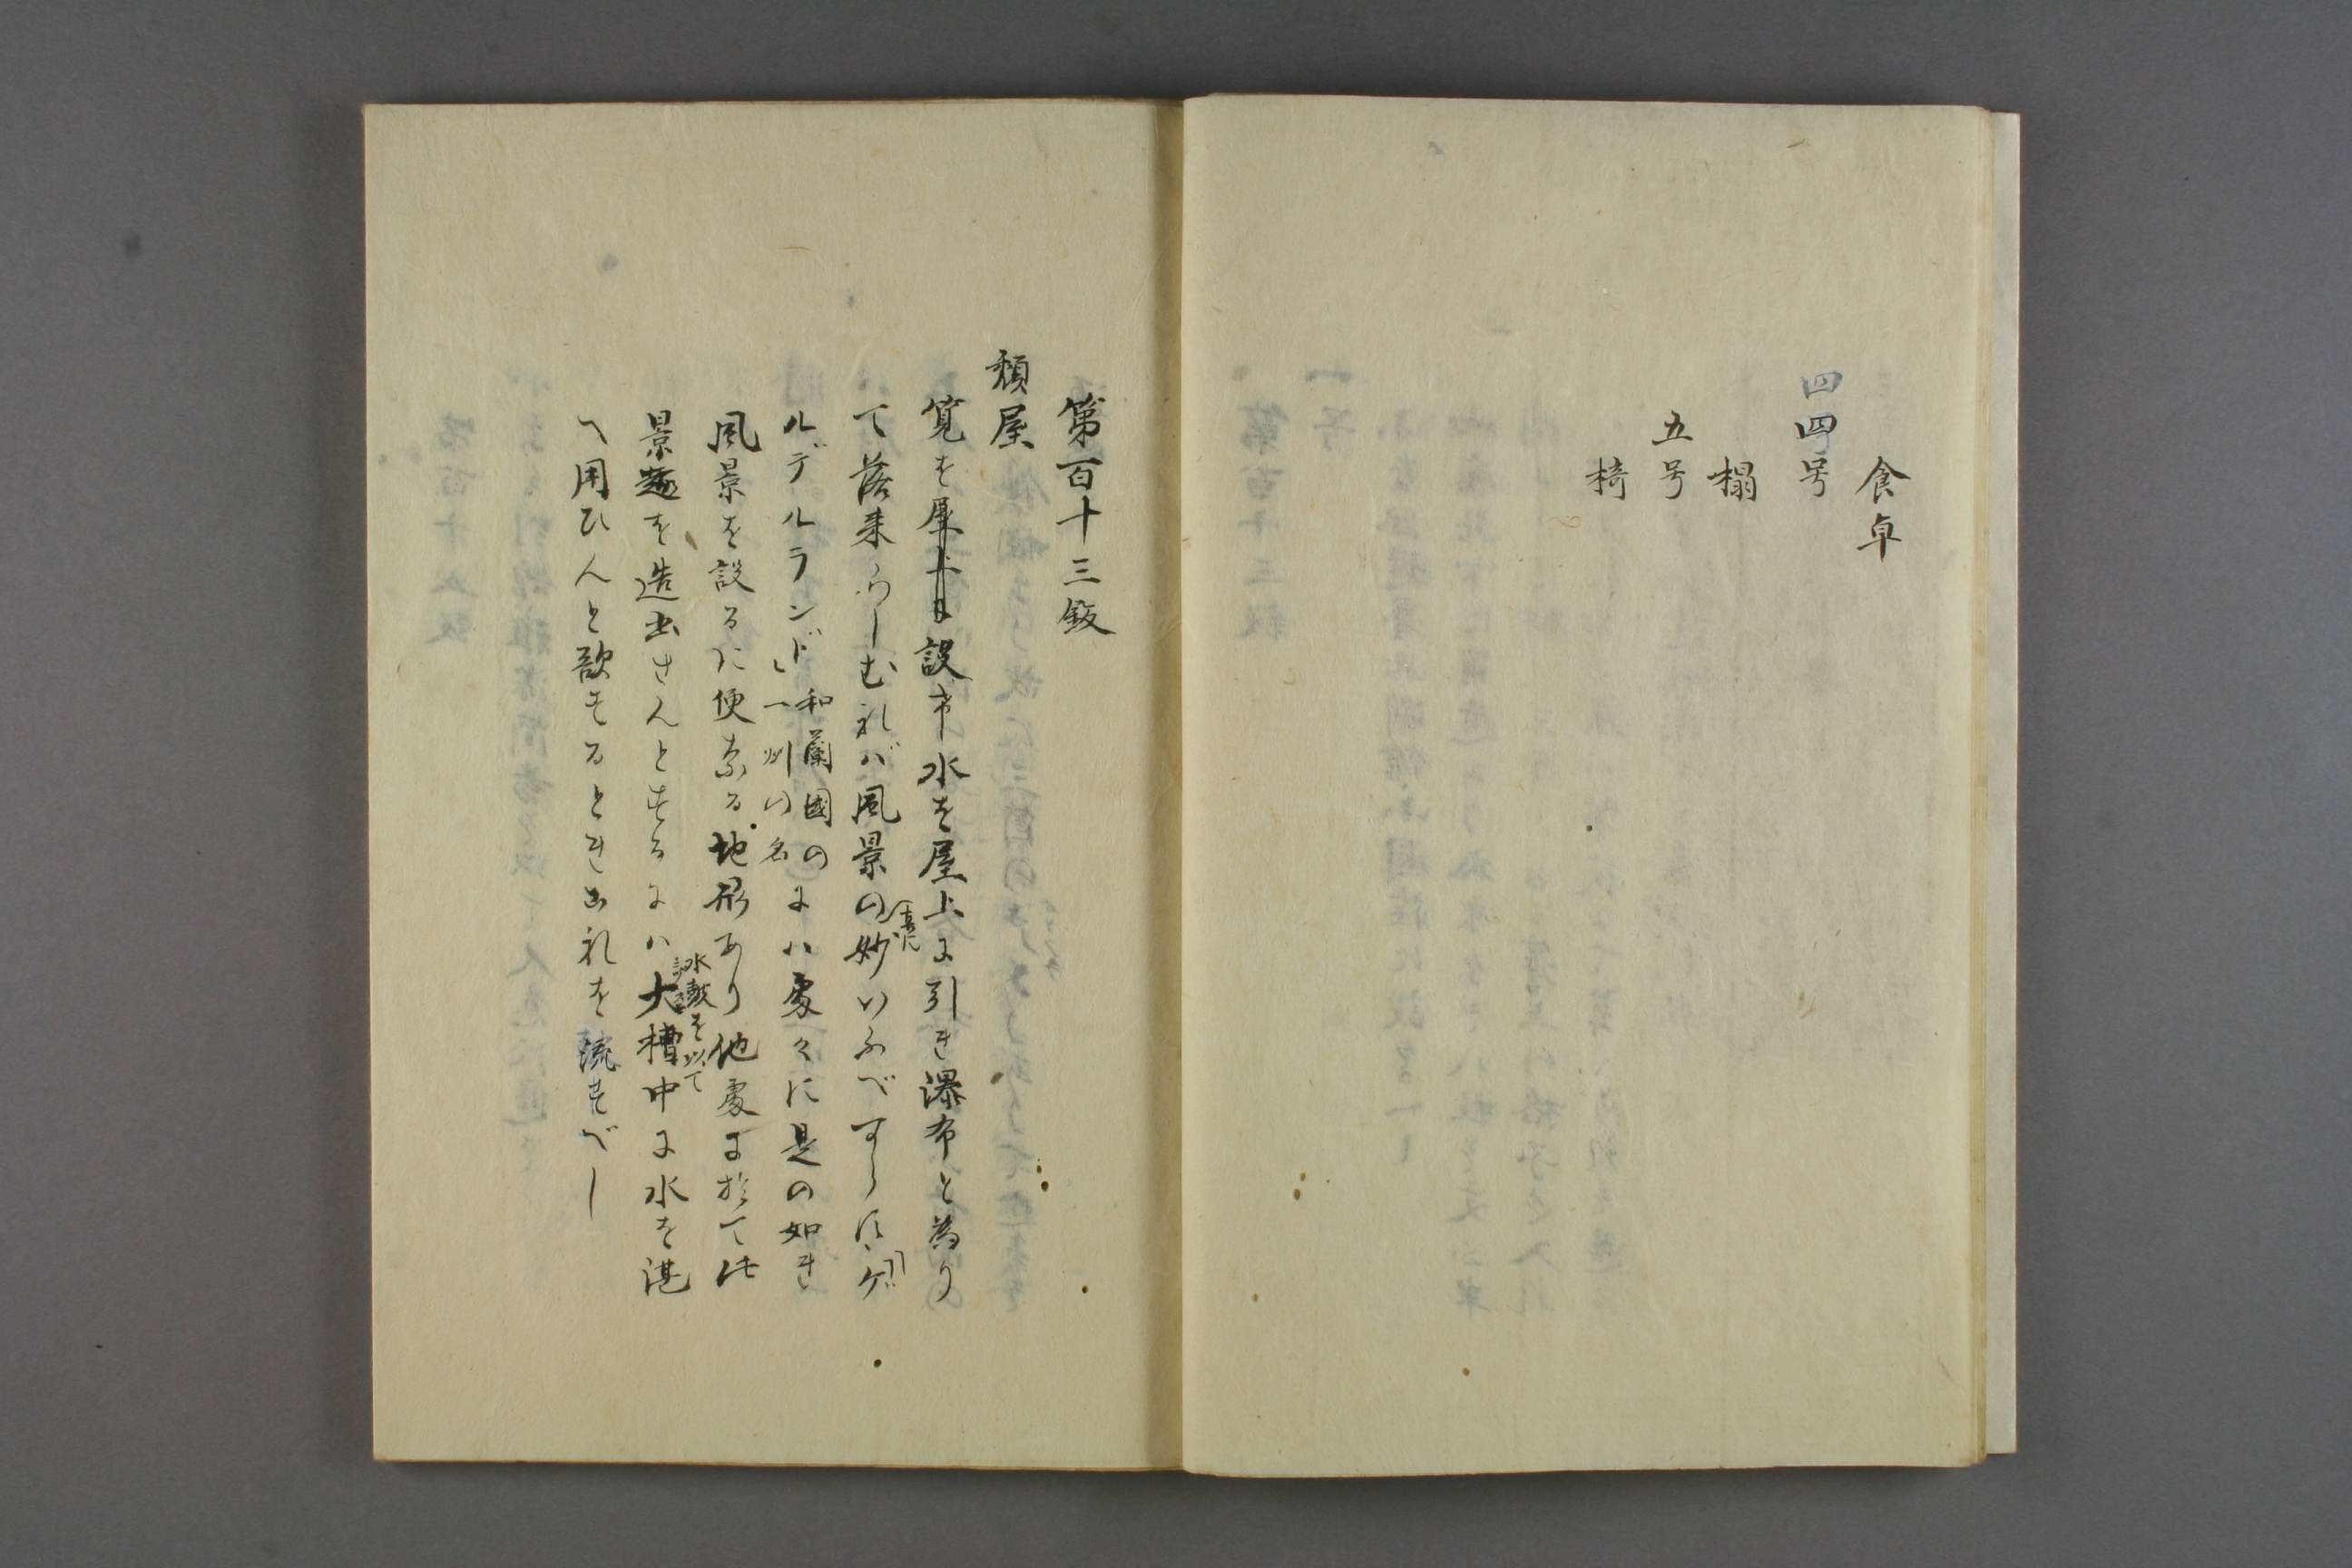 食卓
四四号
榻
五号
椅
第百十三鈑
頽屋
筧を設け水を屋上に引き瀑布と為り
て落来らしむれば風景の妙いふべからず
ルデルランド 和蘭國の一州の名 には處々に是の如き
風景を設るに便なる地形あり他處に於て此
景趣を造出さんとするには大槽中に水を湛
水鼓を以て
へ用ひんと欲するときこれを流すべし